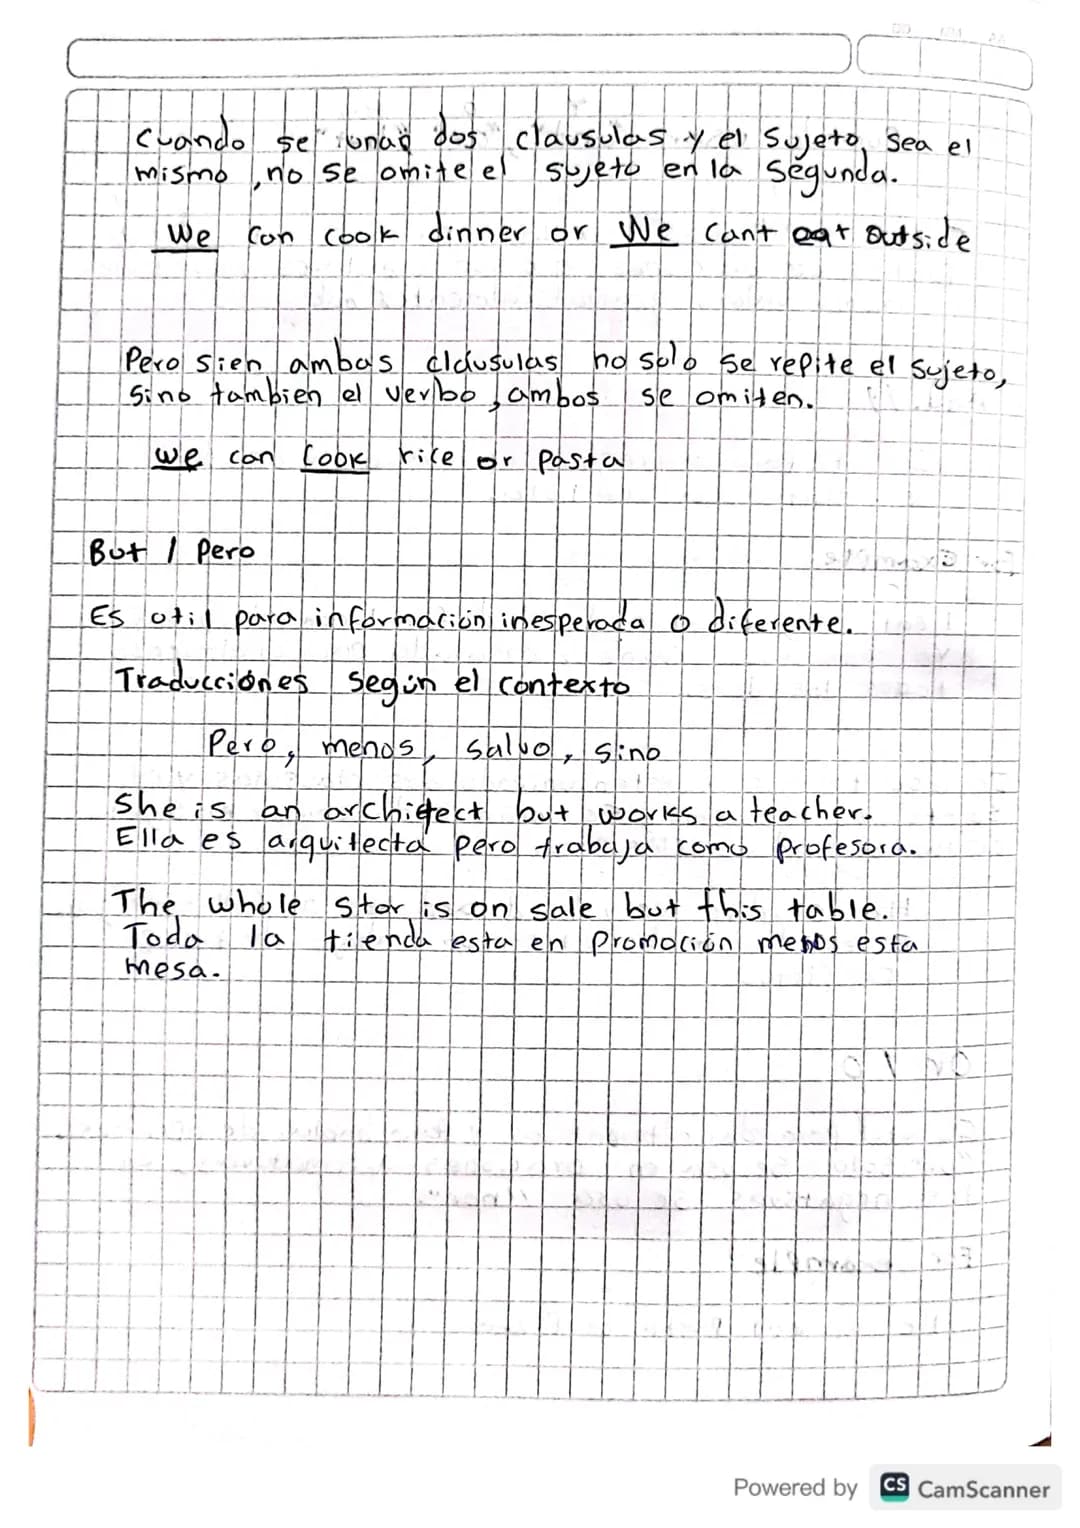 Cuando se unan dos clausulas y el sujeto, sea el
mismo, no se omite el sujeto en la segunda.
We can cook dinner or We cant eat outside
Pero si en ambas cláusulas no solo se repite el sujeto,
Sino tambien el verbo, ambos se omiten.
we can cook rice or pasta
But / Pero
Es util para información inesperada o diferente.
Traducciones según el contexto
Pero, menos, salvo, sino
She is an architect but works a teacher.
Ella es arquitecta pero trabaja como profesora.
The whole stor is on sale but this table.
Toda la tienda esta en promoción menos esta
mesa.
Powered by CS CamScanner